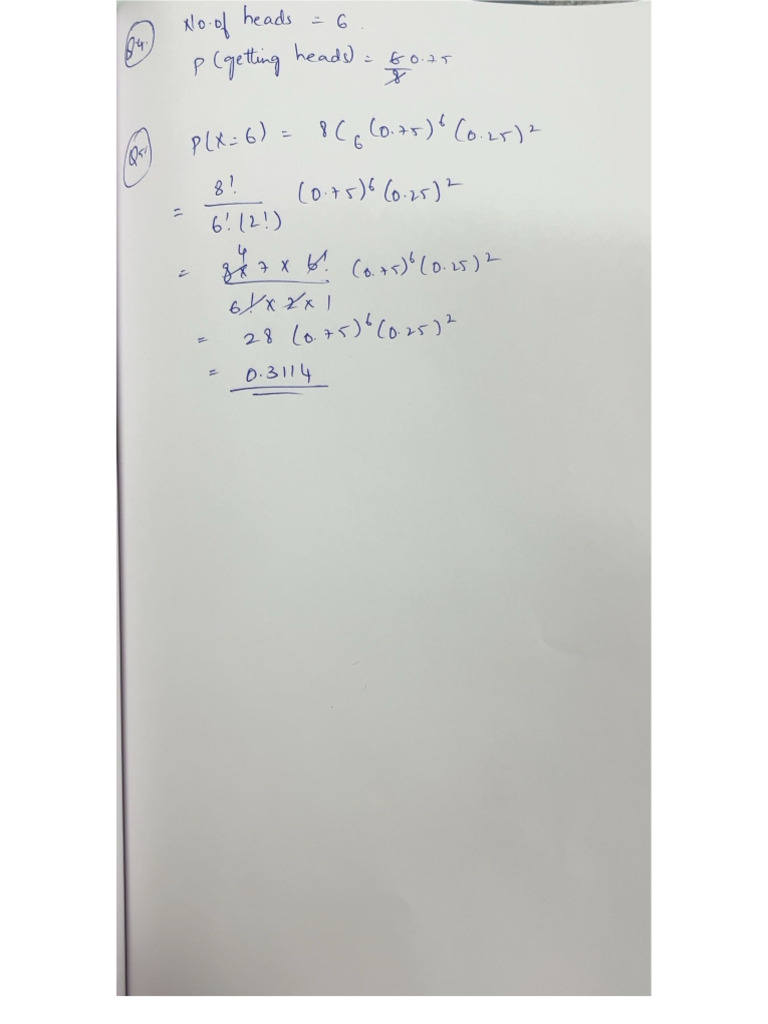 Q4. No.of heads = 6.
P(getting heads) = 6/8 0.75
Q5. P(X=6) = 8C6 (0.75)^6 (0.25)^2
= 8!/6!(2!) (0.75)^6 (0.25)^2
= 8x 4 7 x 6!/6! x 2 x 1 (0.75)^6 (0.25)^2
= 28 (0.75)^6 (0.25)^2
= 0.3114